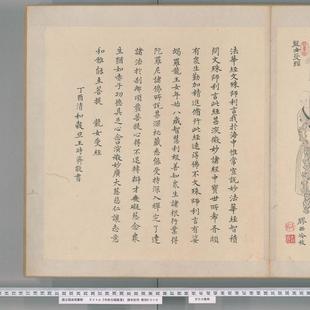 法華經文殊師利言我於海中惟常宣說妙法華經智積
問文殊師利言此經甚深微妙諸經中寶世所希有頗
有衆生勤加精進修行此經速得佛不文殊師利言有娑
竭羅龍王女年始八歲智慧利根善知衆生諸根行業得
陀羅尼諸佛所說甚深秘藏悉能受持深入禪定了達
諸法於剎那頃發菩提心得不退轉辯才無礙慈念衆
生猶如赤子功德具足心念口演微妙廣大慈悲仁讓志意
和雅能至菩提 龍女受經
丁酉清和穀旦王時敬書
龍女受經
膠西冷枚